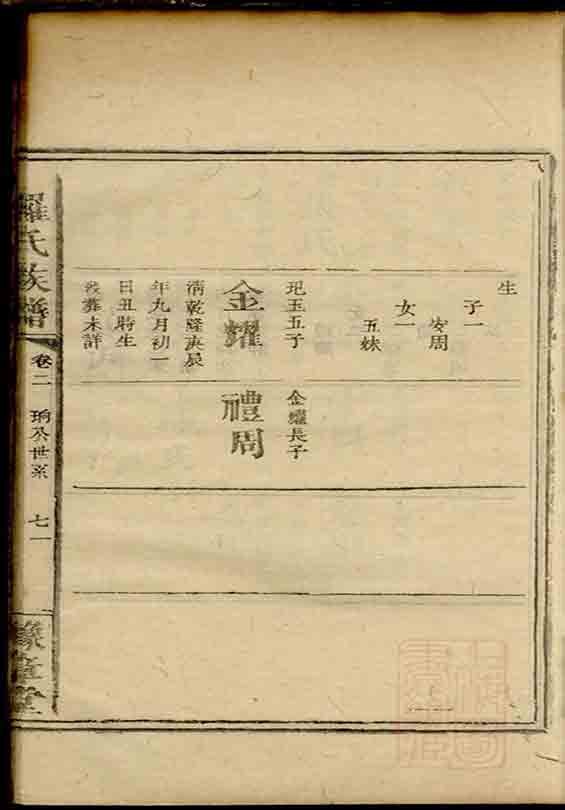 生
子一
安周
女一
五妹
玘玉五子
金耀
清乾隆庚辰
年九月初一
日丑時生
歿葬未詳
金耀長子
禮周
羅氏族譜
卷二
珦公世系
七一
豫章堂